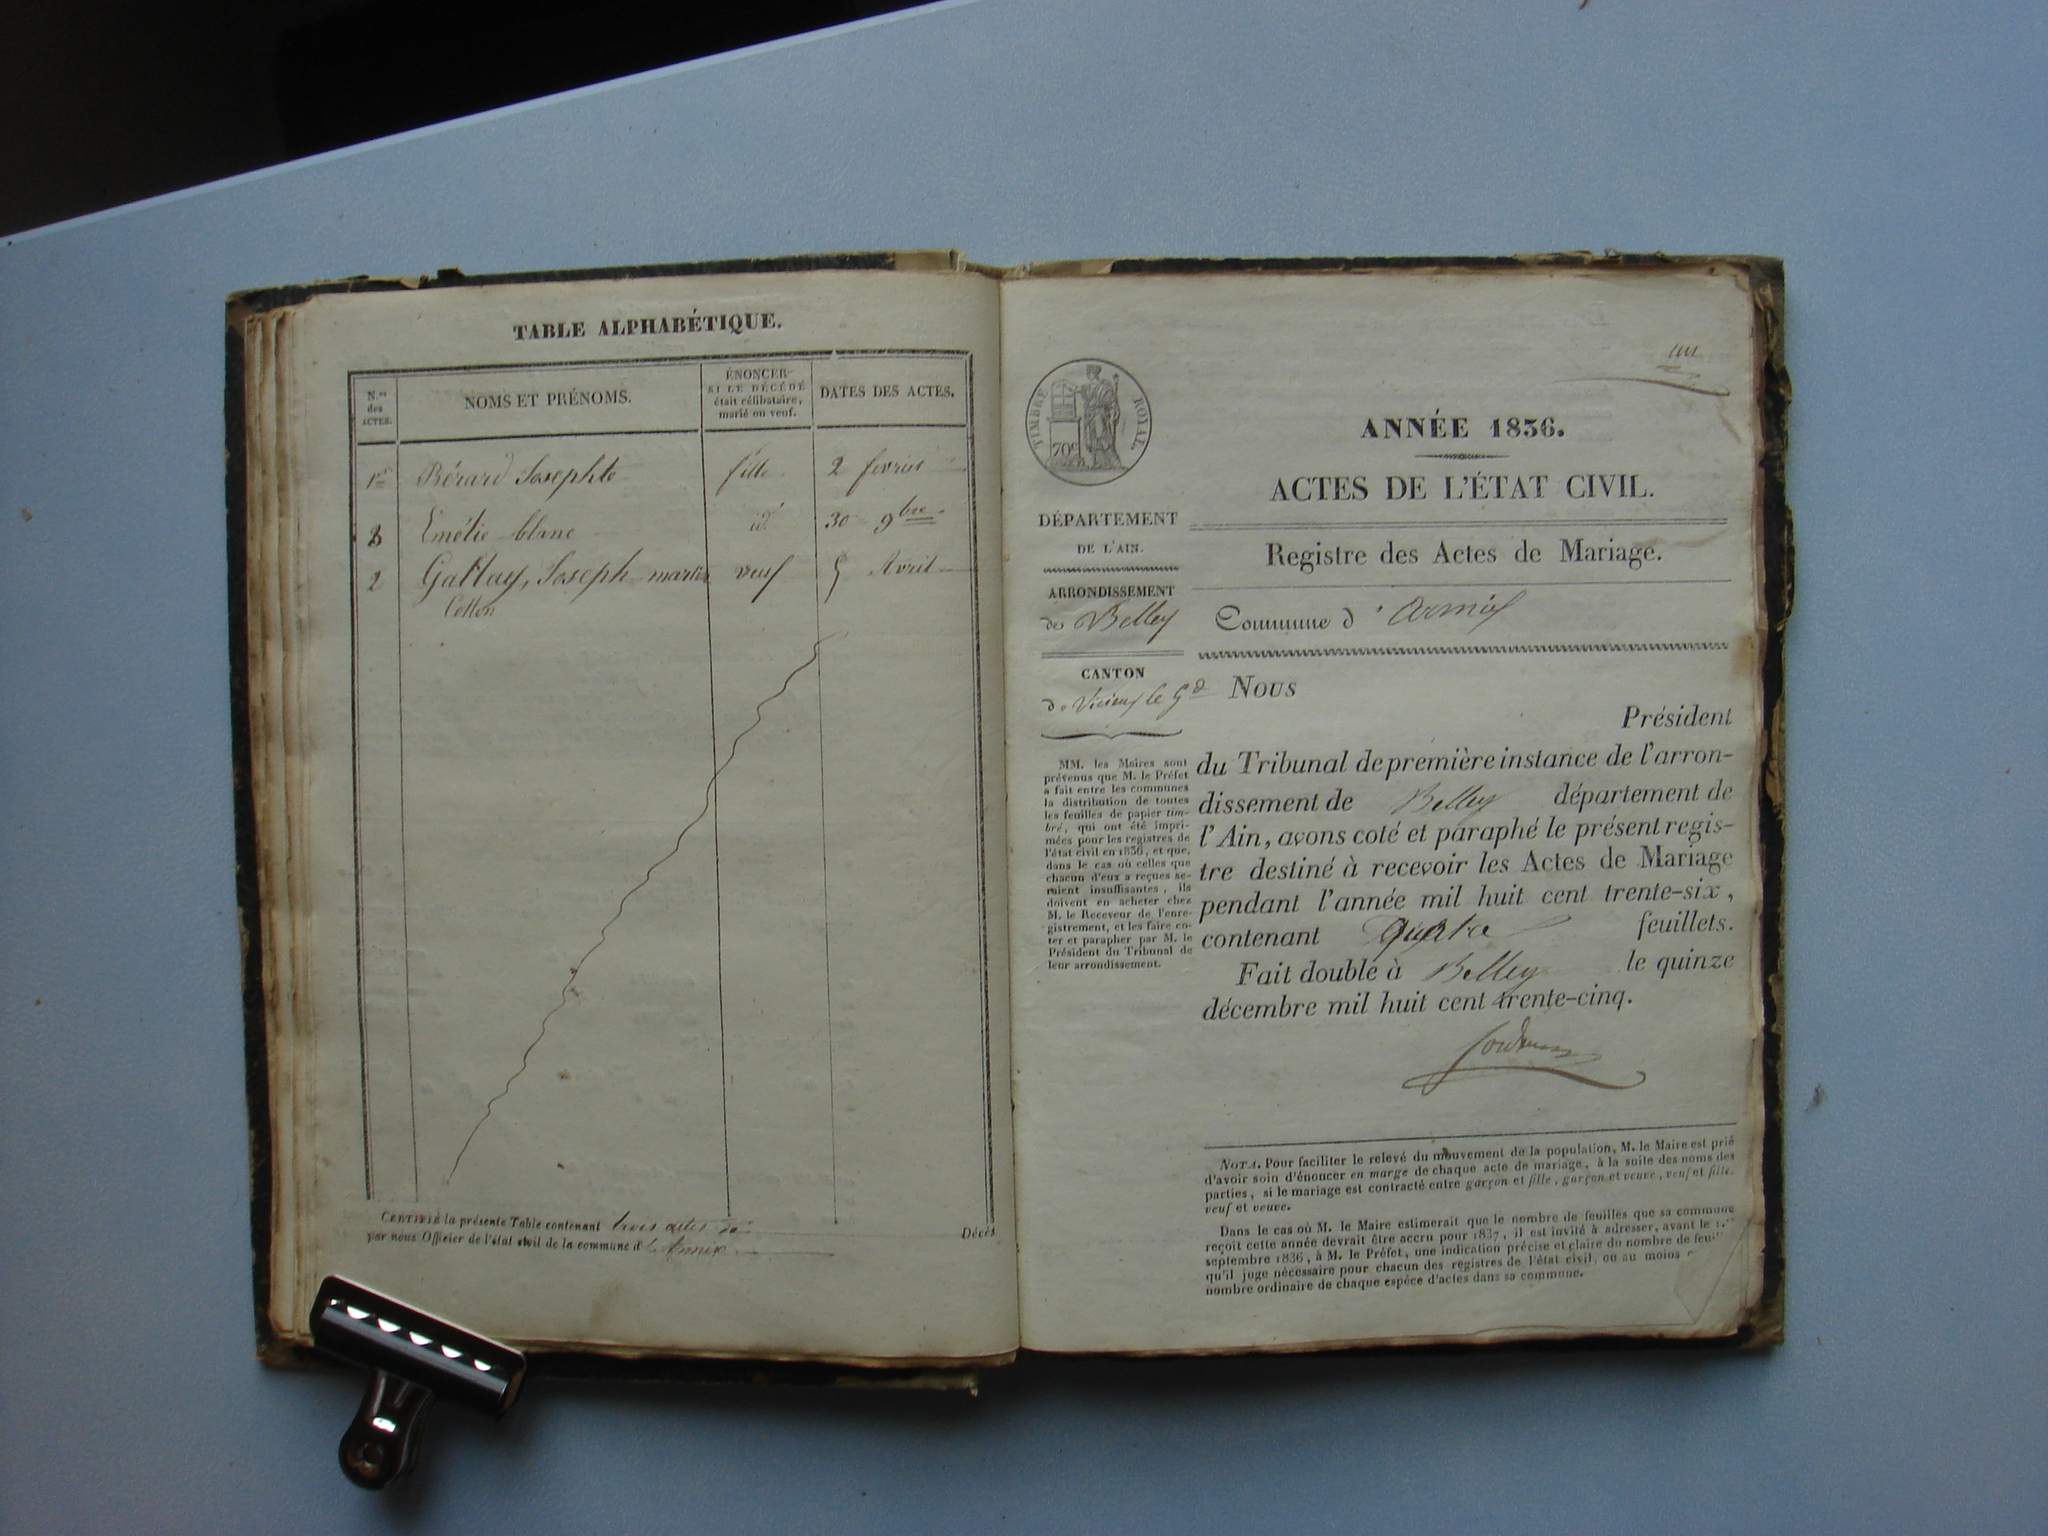 TABLE ALPHABÉTIQUE.
N.os
des
ACTES.
NOMS ET PRÉNOMS.
ÉNONCER
SI LE DÉCÉDÉ
était célibataire,
marié ou veuf.
DATES DES ACTES.
1er Bérard Josephte fille 2 fevrier
3 Emélie blanc id. 30 9bre
2 Gallay, Joseph martin veuf 5 Avril
CERTIFIÉ la présente Table contenant trois actes de Décès
par nous Officier de l'état civil de la commune d'Armix
un
TIMBRE ROYAL.
70c
ANNÉE 1836.
ACTES DE L'ÉTAT CIVIL.
Registre des Actes de Mariage.
Commune d'armix
DÉPARTEMENT
DE L'AIN.
ARRONDISSEMENT
de Belley
CANTON
de Virieux le Gd
MM. les Maires sont
prévenus que M. le Préfet
a fait entre les communes
la distribution de toutes
les feuilles de papier tim-
bré, qui ont été impri-
mées pour les registres de
l'état civil en 1836, et que,
dans le cas où celles que
chacun d'eux a reçues se-
raient insuffisantes, ils
doivent en acheter chez
M. le Receveur de l'enre-
gistrement, et les faire co-
ter et parapher par M. le
Président du Tribunal de
leur arrondissement.
NOUS
Président
du Tribunal de première instance de l'arron-
dissement de Belley département de
l'Ain, avons coté et paraphé le présent regis-
tre destiné à recevoir les Actes de Mariage
pendant l'année mil huit cent trente-six,
contenant quatre feuillets.
Fait double à Belley le quinze
décembre mil huit cent trente-cinq.
NOTA. Pour faciliter le relevé du mouvement de la population, M. le Maire est prié
d'avoir soin d'énoncer en marge de chaque acte de mariage, à la suite des noms des
parties, si le mariage est contracté entre garçon et fille, garçon et veuve, veuf et fille,
veuf et veuve.
Dans le cas où M. le Maire estimerait que le nombre de feuilles que sa commune
reçoit cette année devrait être accru pour 1837, il est invité à adresser, avant le 1.er
septembre 1836, à M. le Préfet, une indication précise et claire du nombre de
qu'il juge nécessaire pour chacun des registres de l'état civil, ou au moins
nombre ordinaire de chaque espèce d'actes dans sa commune.